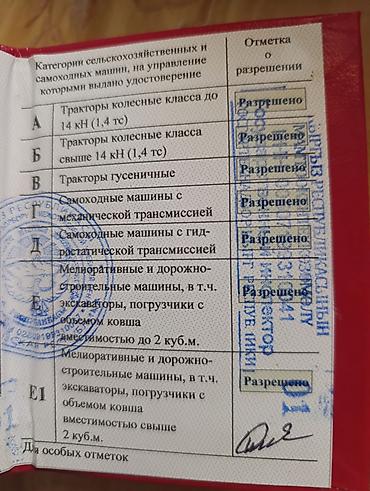 Категории сельскохозяйственных и
самоходных машин, на управление
которыми выдано удостоверение
Отметка
о
разрешении
А
Тракторы колесные класса до
14 кН (1,4 тс)
Разрешено
Б
Тракторы колесные класса
свыше 14 кН (1,4 тс)
Разрешено
В
Тракторы гусеничные
Разрешено
Г
Самоходные машины с
механической трансмиссией
Разрешено
Д
Самоходные машины с гид-
ростатической трансмиссией
Разрешено
Е
Мелиоративные и дорожно-
строительные машины, в т.ч.
экскаваторы, погрузчики с
объемом ковша
вместимостью до 2 куб.м.
Разрешено
Е1
Мелиоративные и дорожно-
строительные машины, в т.ч.
экскаваторы, погрузчики с
объемом ковша
вместимостью свыше
2 куб.м.
Разрешено
Для особых отметок
КЫРГЫЗ РЕСПУБЛИКАСЫНЫН
01